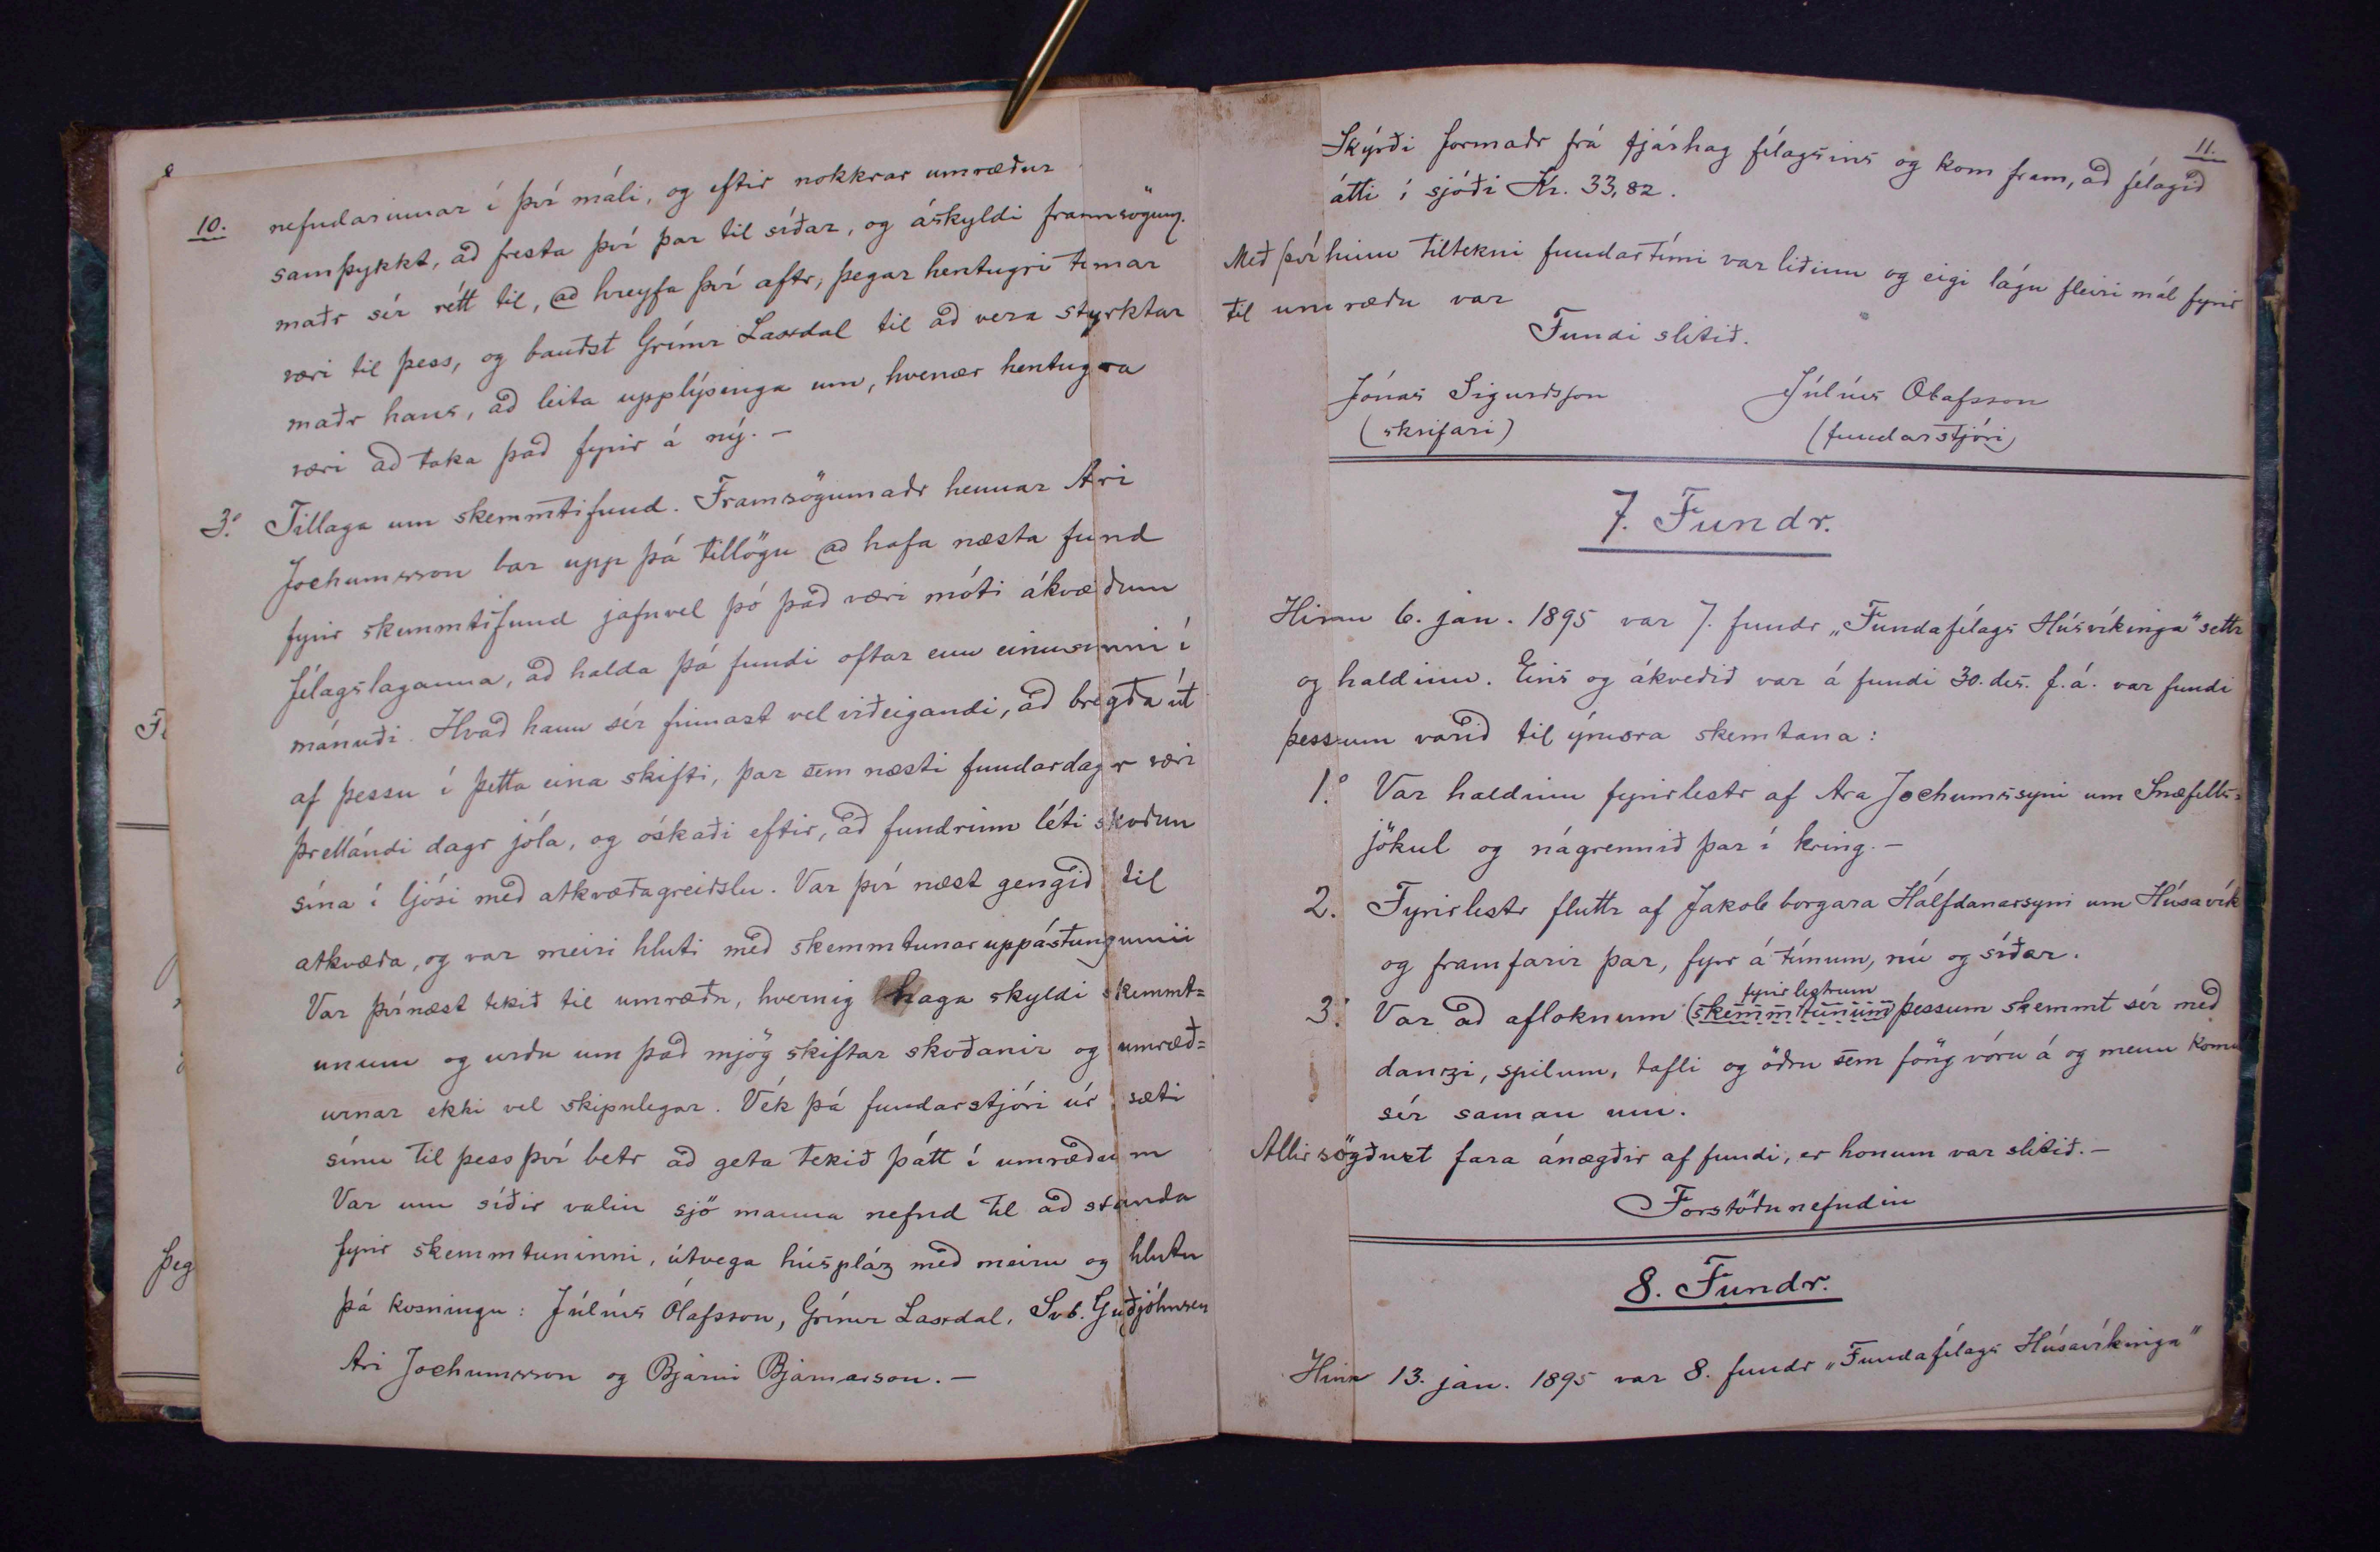 10.
nefndarinnar í því máli, og eftir nokkrar umræður
samþykkt, að fresta því þar til síðar, og áskyldi framsögum.
maðr sér rétt til, að hreyfa því aftr, þegar hentugri tímar
væri til þess, og bauðst Grímr Laxdal til að vera styrktar
maðr hans, að leita upplýsinga um, hvenær hentugra
væri að taka það fyrir á ný. —
3.o Tillaga um skemmtifund. Framsögumaðr hennar Ari
Jochumsson bar upp þá tillögu að hafa næsta fund
fyrir skemmtifund jafnvel þó það væri móti ákvæðum
félagslaganna, að halda þá fundi oftar enn einusinni í
mánuði. Hvað hann sér finnast vel viðeigandi, að bregða út
af þessu í þetta eina skifti, þar sem næsti fundardagr væri
þrettándi dagr jóla, og óskaði eftir, að fundrinn léti skoðun
sína í ljósi með atkvæðagreiðslu. Var því næst gengið til
atkvæða, og var meiri hluti með skemmtunaruppástungunni
Var þvínæst tekið til umræðu, hvernig haga skyldi skemmt=
unum og urðu um það mjög skiftar skoðanir og umræð=
urnar ekki vel skipulegar. Vék þá fundarstjóri úr sæti
sínu til þess því betr að geta tekið þátt í umræðum
Var um síðir valin sjö manna nefnd til að standa
fyrir skemmtuninni, útvega húspláz með meiru og hlutu
þá kosningu: Júlíus Ólafsson, Grímur Laxdal, Svb. Guðjóhnsen
Ari Jochumsson og Bjarni Bjarnarson. —
Þeg
11.
Skýrði formaðr frá fjárhag félagsins og kom fram, að félagið
átti í sjóði Kr. 33,82.
Með því hinn tiltekni fundartími var liðinn og eigi lágu fleiri mál fyrir
til umræðu var
Fundi slitið.
Jónas Sigurðsson Júlíus Ólafsson
(skrifari) (fundarstjóri)
7. Fundr.
Hinn 6. jan. 1895 var 7. fundr „Fundafélags Húsvíkinga" settr
og haldinn. Eins og ákveðið var á fundi 30. des. f. á. var fundi
þessum varið til ýmsra skemtana:
1.o Var haldinn fyrirlestr af Ara Jochumssyni um Snæfells=
jökul og nágrennið þar í kring. —
2. Fyrirlestr fluttr af Jakob borgara Hálfdanarsyni um Húsavík
og framfarir þar, fyr á tímum, nú og síðar.
fyrirlestrum
3. Var að afloknum (skemmtunum) þessum skemmt sér með
danzi, spilum, tafli og öðru sem föng vóru á og menn komu
sér saman um.
Allir sögðust fara ánægðir af fundi, er honum var slitið. —
Forstöðunefndin
8. Fundr.
Hinn 13. jan. 1895 var 8. fundr „Fundafélags Húsavíkinga"